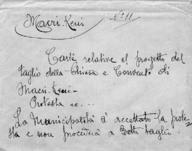 Macri-Keui
No 11
Carte relative al progetto del
taglio della Chiesa e Convento di
Macri-Keui
Protesta ec...
La Municipalità à accettato la prote-
sta e non procederà a Detti tagli.